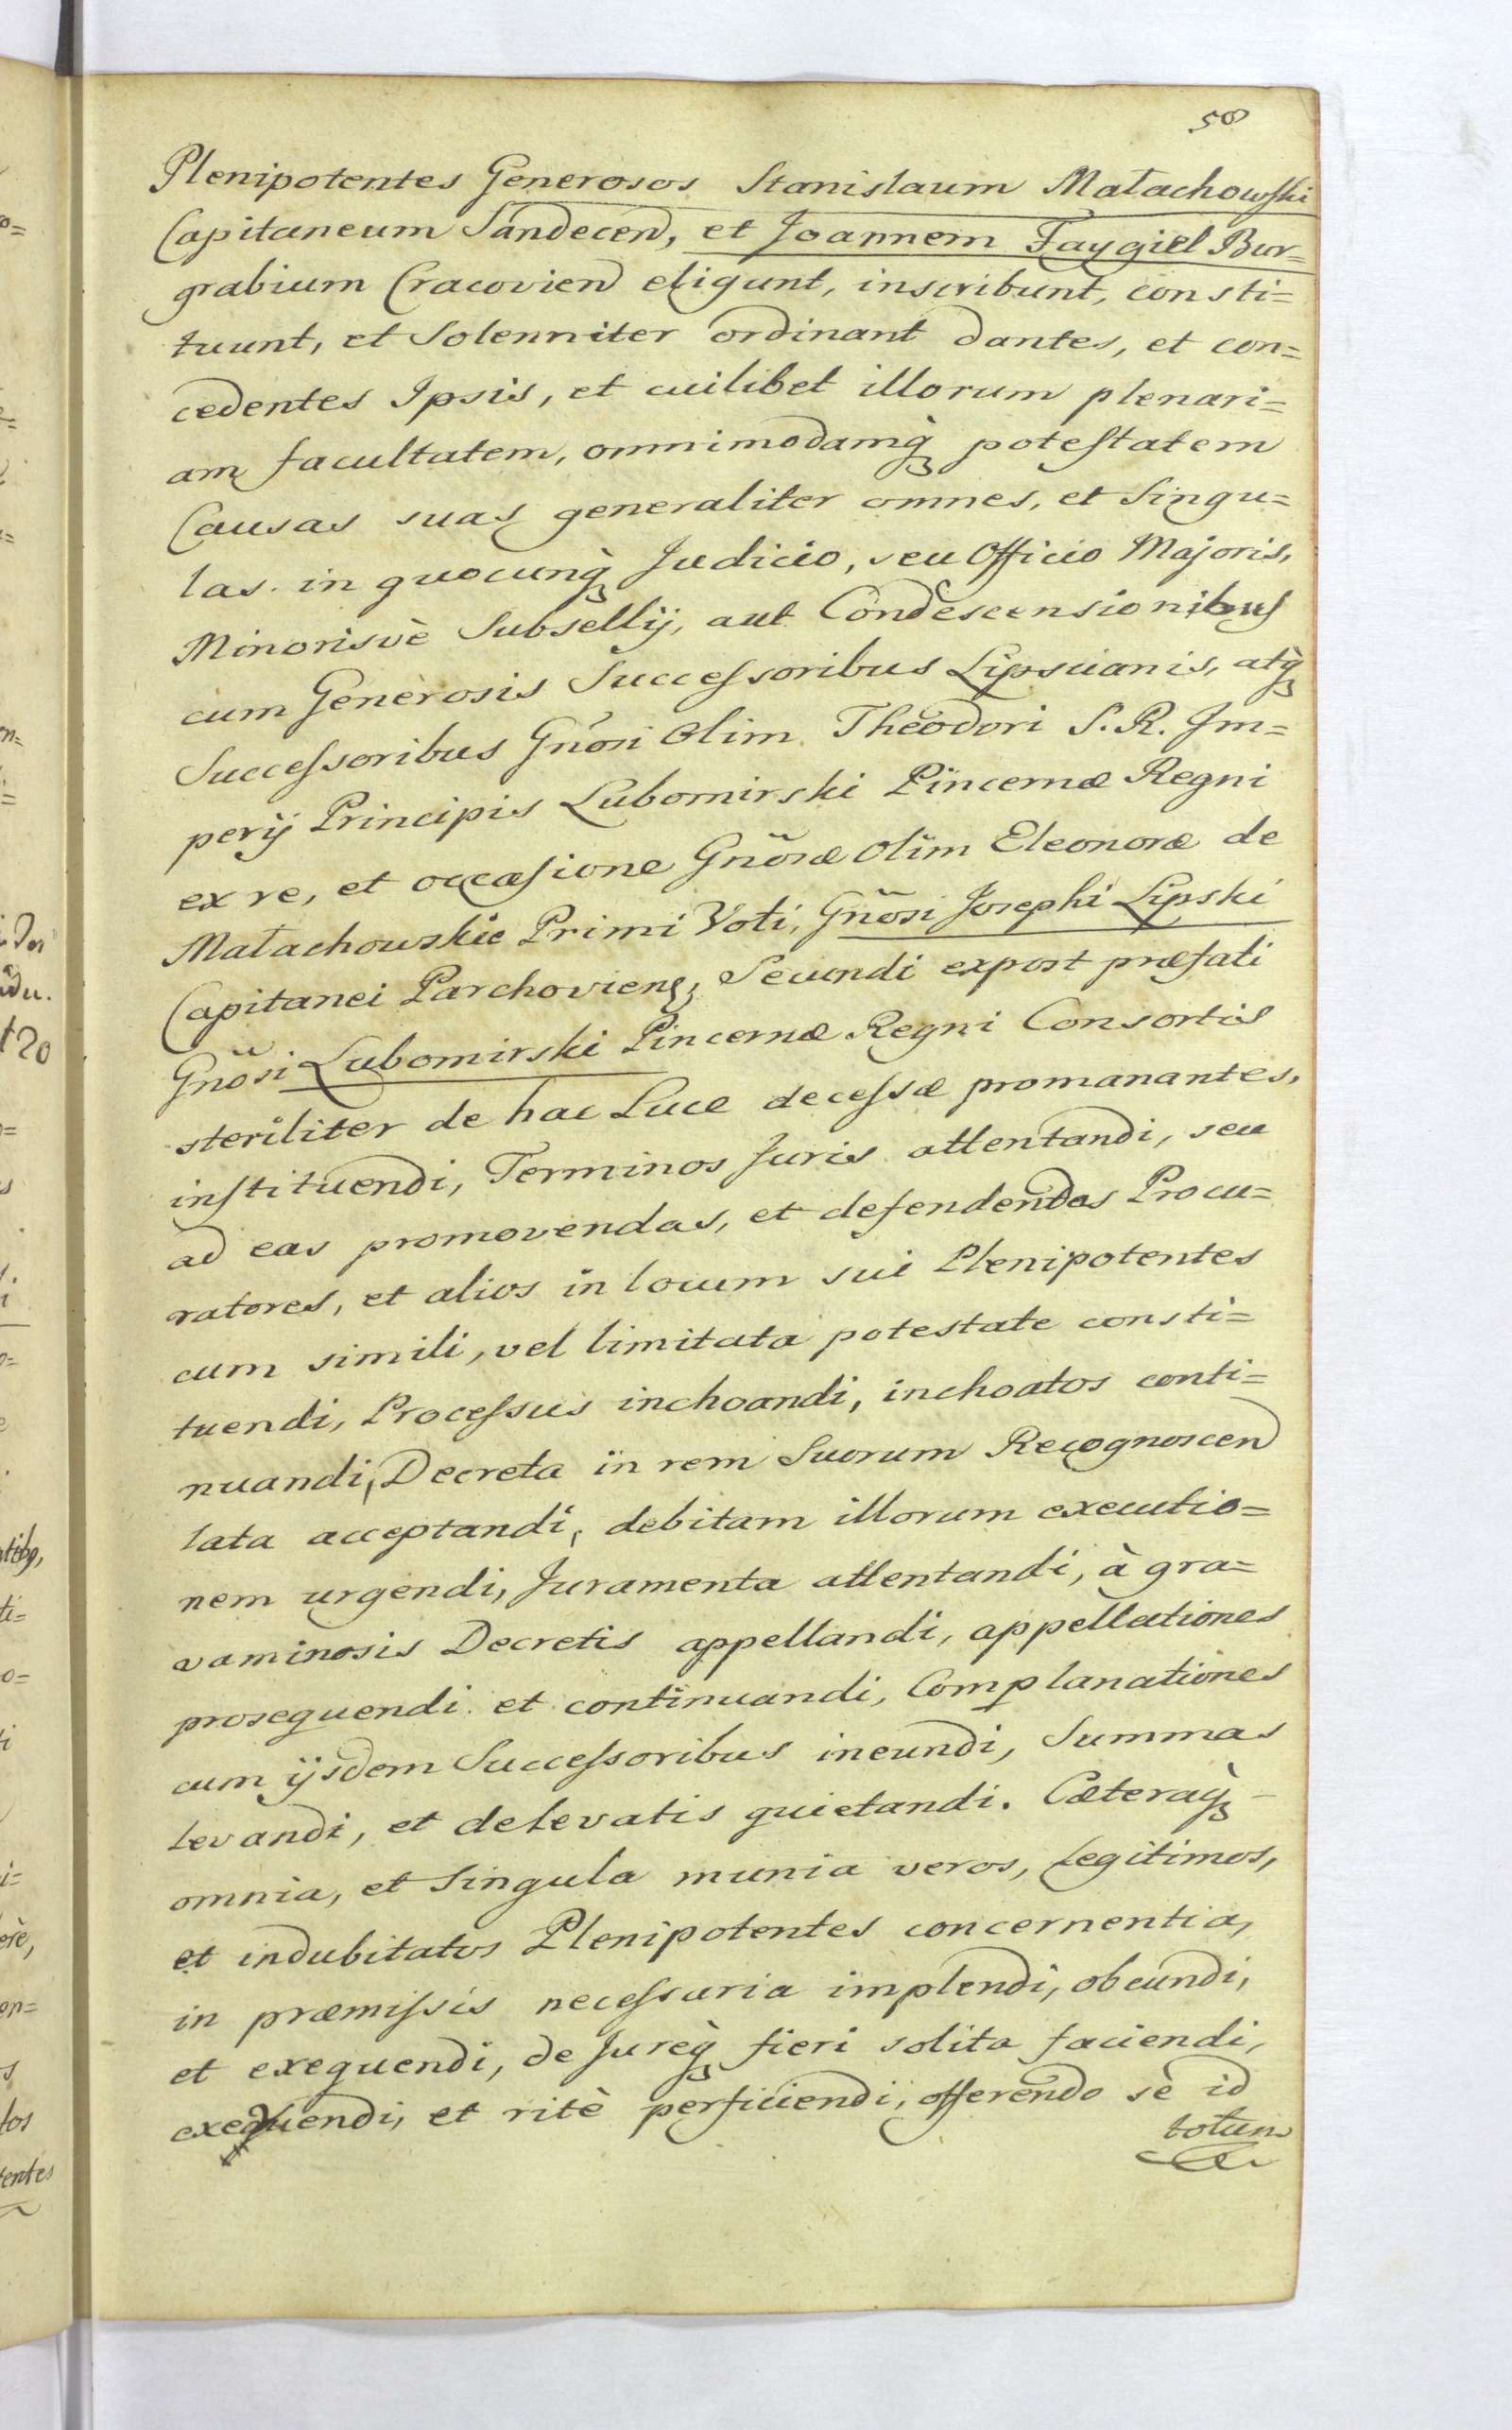 58
Plenipotentes Generosos Stanislaum Małachowski
Capitaneum Sandecen, et Joannem Faygiel Bur=
grabium Cracovien eligunt, inscribunt, consti=
tuunt, et Solenniter ordinant dantes, et con=
cedentes Ipsis, et cuilibet illorum plenari=
am facultatem, omnimodamq̀ꝫ potestatem
Causas suas generaliter omnes, et Singu=
las in quocunq̀ꝫ Judicio, seu Officio Majoris,
Minorisvè Subsellij, aut Condescensionibus
cum Generosis Successoribus Lipscianis, atq̀ꝫ
Successoribus Gnõsi Olim Theodori S. R. Im=
perij Principis Lubomirski Pincernæ Regni
ex re, et occasione Gnõsæ Olim Eleonoræ de
Małachowskie Primi Voti, Gnõsi Josephi Lipski
Capitanei Parchovien, Secundi expost præfati
Gnõsi Lubomirski Pincernæ Regni Consortis
steriliter de hac Luce decessæ promanantes,
instituendi, Terminos Juris attentandi, seu
ad eas promovendas, et defendendas Procu=
ratores, et alios in locum sui Plenipotentes
cum simili, vel limitata potestate consti=
tuendi, Processus inchoandi, inchoatos conti=
nuandi, Decreta in rem Suorum Recognoscen
lata acceptandi, debitam illorum executio=
nem urgendi, Juramenta attentandi, à gra=
vaminosis Decretis appellandi, appellationes
prosequendi et continuandi, Complanationes
cum ijsdem Successoribus ineundi, Summas
levandi, et delevatis quietandi. Cæteraq̀ꝫ
omnia, et Singula munia veros, legitimos,
et indubitatos Plenipotentes concernentia,
in præmissis necessaria implendi, obeundi,
et exequendi, de Jureq̀ꝫ fieri solita faciendi,
exequendi, et ritè perficiendi, offerendo sè id
totum